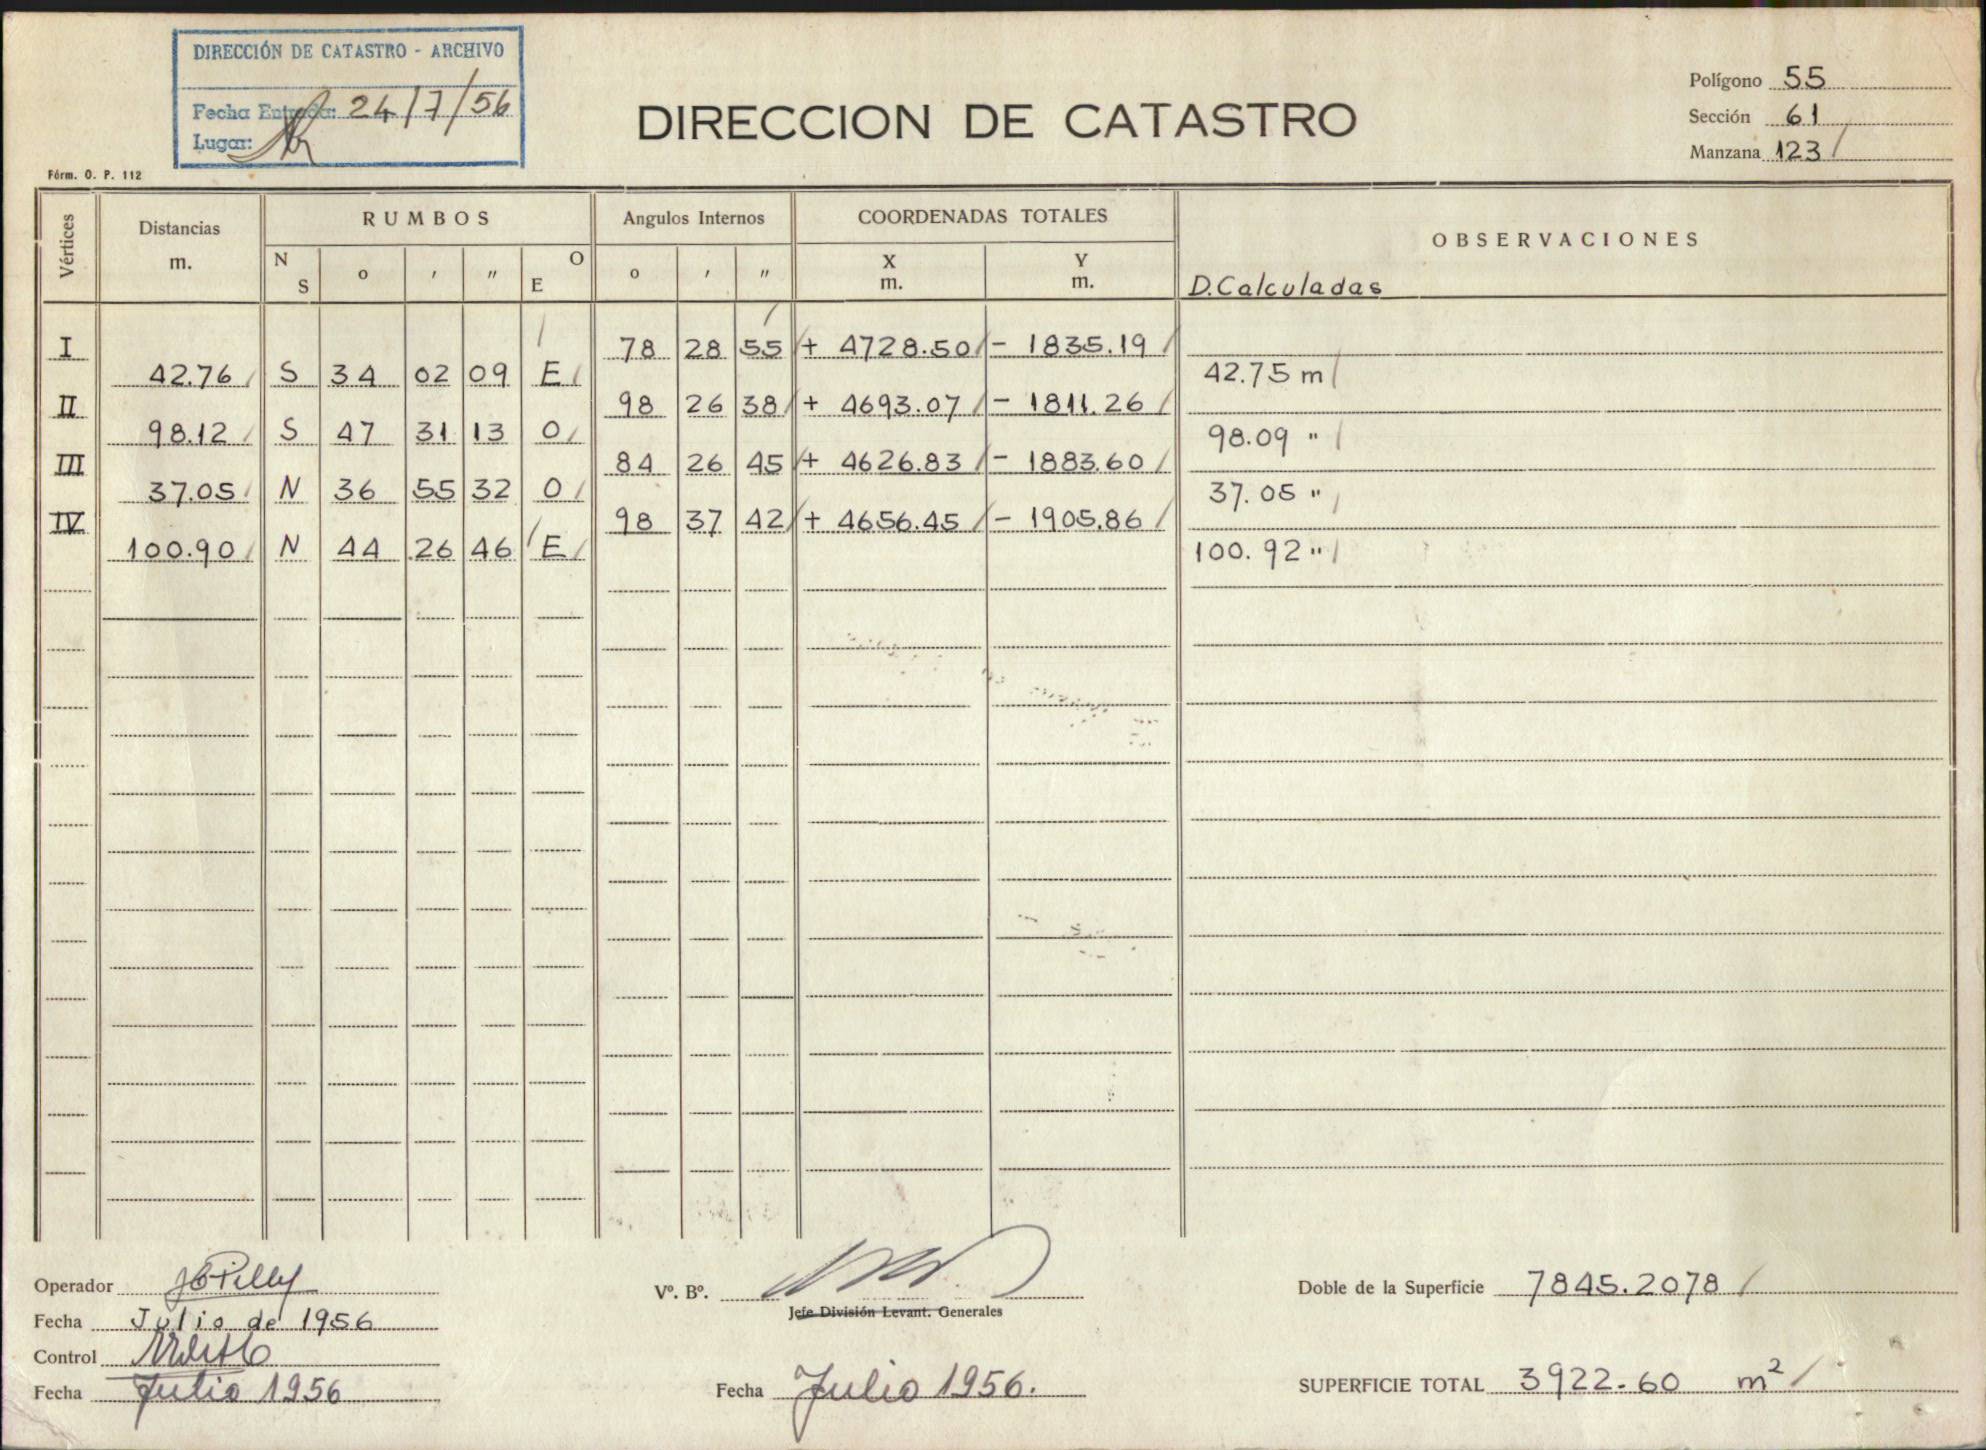 DIRECCIÓN DE CATASTRO - ARCHIVO
Fecha Entrada: 24/7/56
Lugar:
DIRECCION DE CATASTRO
Polígono 55
Sección 61
Manzana 123
Fórm. O. P. 112
Vértices Distancias m. RUMBOS Angulos Internos COORDENADAS TOTALES OBSERVACIONES
N S o ' " O E o ' " X m. Y m.
D.Calculadas
I 78 28 55 + 4728.50 - 1835.19
42.76 S 34 02 09 E 42.75 m
II 98 26 38 + 4693.07 - 1811.26
98.12 S 47 31 13 O 98.09 "
III 84 26 45 + 4626.83 - 1883.60
37.05 N 36 55 32 O 37.05 "
IV 98 37 42 + 4656.45 - 1905.86
100.90 N 44 26 46 E 100.92 "
Operador
Fecha Julio de 1956
Control
Fecha Julio 1956
Vº. Bº.
Jefe División Levant. Generales
Fecha Julio 1956.
Doble de la Superficie 7845.2078
SUPERFICIE TOTAL 3922.60 m²